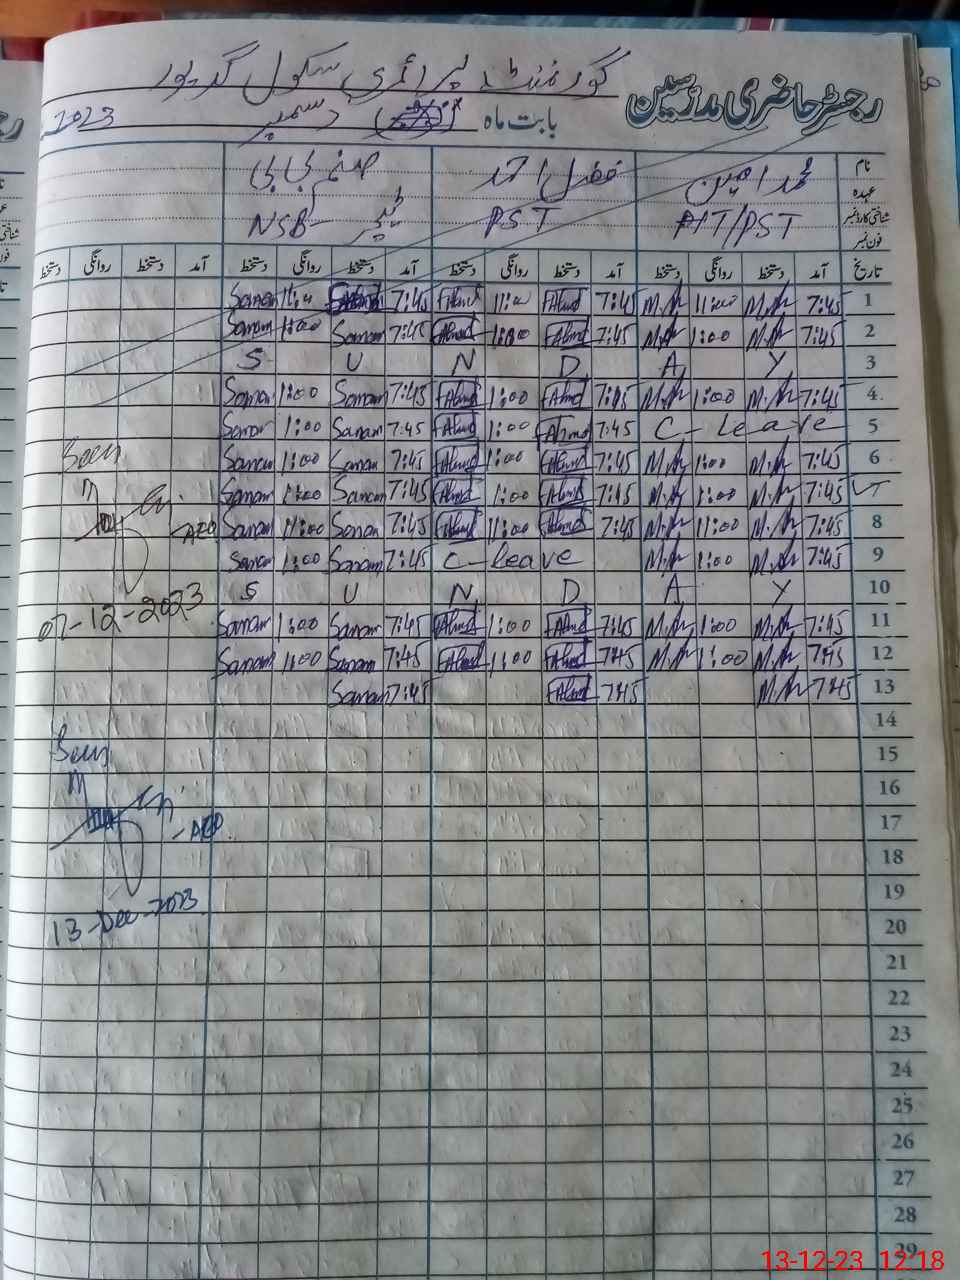 رجسٹر حاضری مدرسین گورنمنٹ پرائمری سکول
بابت ماہ دسمبر 2023
نام محمد امین فضل احمد صنم بی بی
عہدہ
شناختی کارڈ نمبر PST PST NSB ٹیچر
فون نمبر
تاریخ آمد دستخط روانگی دستخط آمد دستخط روانگی دستخط آمد دستخط روانگی دستخط آمد دستخط روانگی دستخط
Sanam 11:00 7:45 FAhmd 11:00 FAhmd 7:45 M.A 11:00 M.A 7:45 1
Sanam 1:00 Sanam 7:45 FAhmd 1:00 FAhmd 7:45 M.A 1:00 M.A 7:45 2
S U N D A Y 3
Sanam 1:00 Sanam 7:45 FAhmd 1:00 FAhmd 7:45 M.A 1:00 M.A 7:45 4
Sanam 1:00 Sanam 7:45 FAhmd 1:00 FAhmd 7:45 C-Leave 5
Sanam 1:00 Sanam 7:45 FAhmd 1:00 FAhmd 7:45 M.A 1:00 M.A 7:45 6
Sanam 1:00 Sanam 7:45 FAhmd 1:00 FAhmd 7:45 M.A 1:00 M.A 7:45 7
Sanam 11:00 Sanam 7:45 FAhmd 11:00 FAhmd 7:45 M.A 11:00 M.A 7:45 8
Sanam 1:00 Sanam 7:45 C-Leave M.A 1:00 M.A 7:45 9
S U N D A Y 10
Sanam 1:00 Sanam 7:45 FAhmd 1:00 FAhmd 7:45 M.A 1:00 M.A 7:45 11
Sanam 1:00 Sanam 7:45 FAhmd 1:00 FAhmd 7:45 M.A 1:00 M.A 7:45 12
Sanam 7:45 FAhmd 7:45 M.A 7:45 13
Seen
AEO
07-12-2023
14
Seen
15
16
AEO
17
18
19
13-Dec-2023
20
21
22
23
24
25
26
27
28
29
13-12-23 12:18